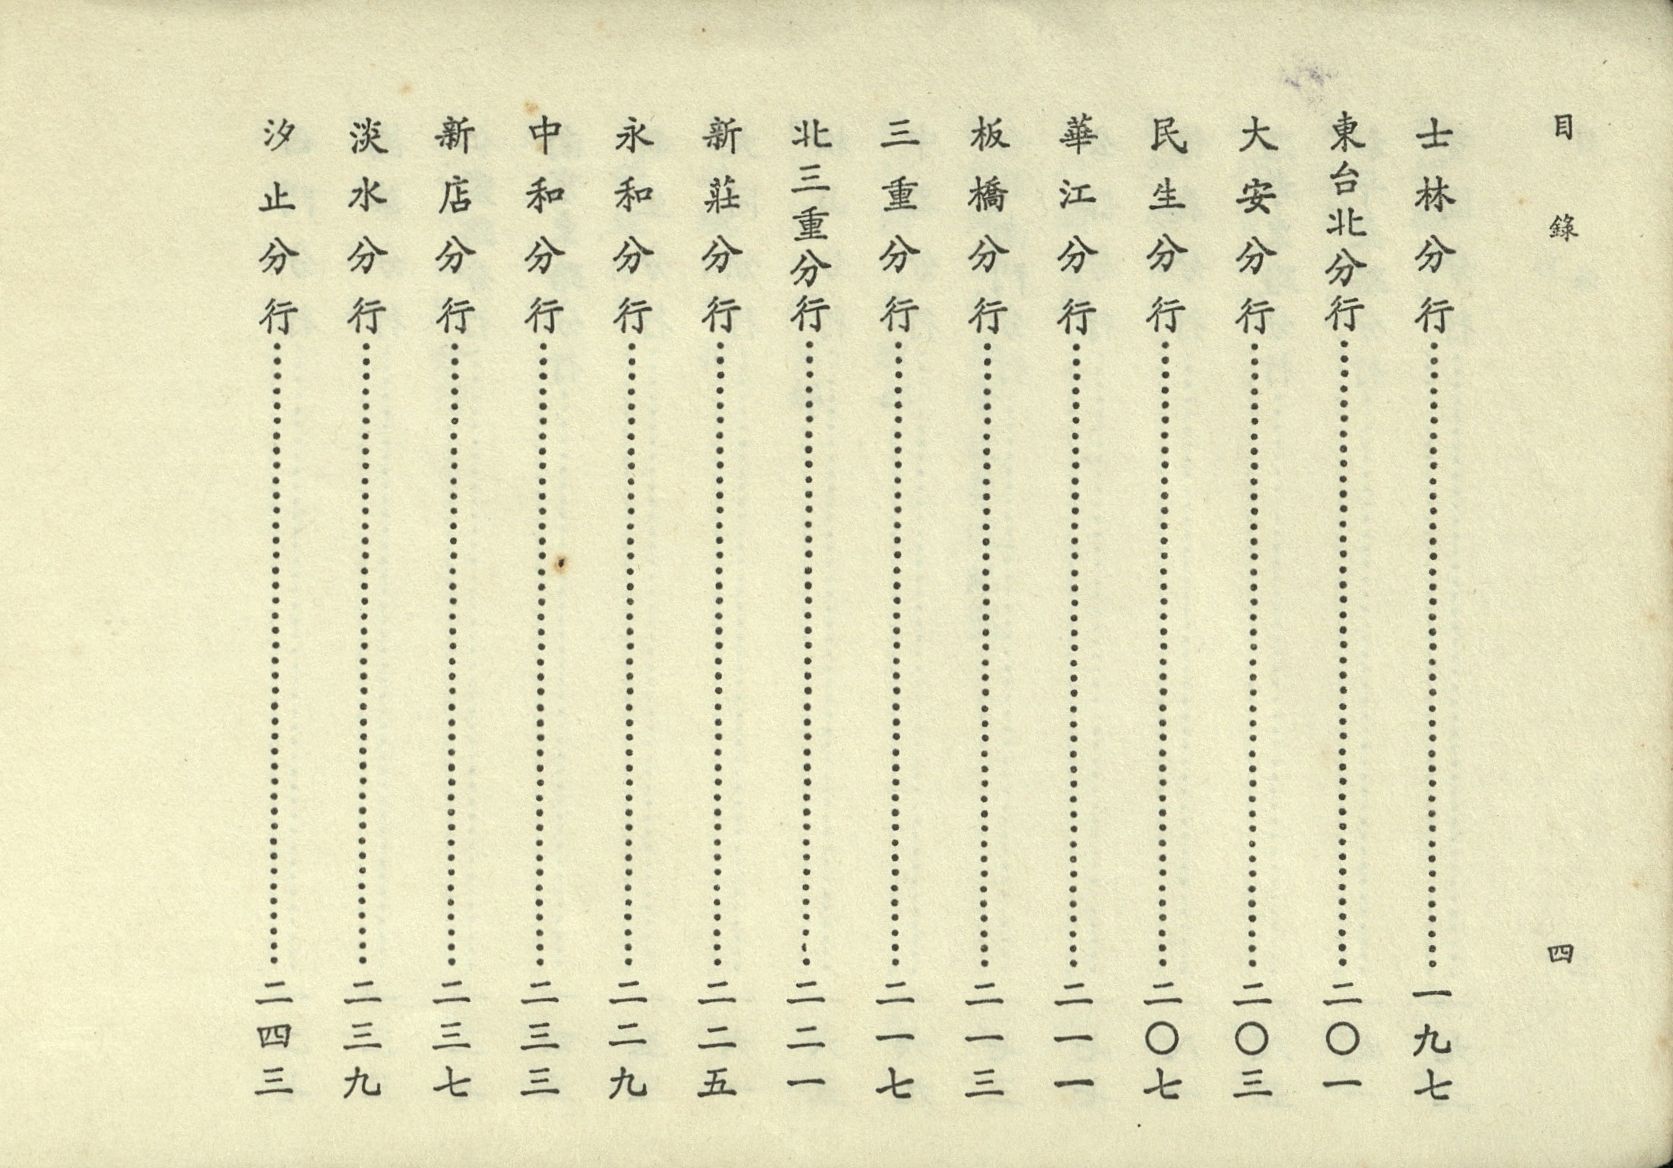 目錄 四
士林分行……………………一九七
東台北分行……………………二〇一
大安分行……………………二〇三
民生分行……………………二〇七
華江分行……………………二一一
板橋分行……………………二一三
三重分行……………………二一七
北三重分行……………………二二一
新莊分行……………………二二五
永和分行……………………二二九
中和分行……………………二三三
新店分行……………………二三七
淡水分行……………………二三九
汐止分行……………………二四三